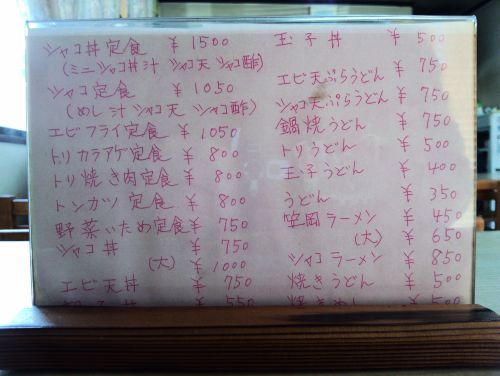 シャコ丼定食 ¥1500
(ミニシャコ丼汁 シャコ天 シャコ酢)
シャコ定食 ¥1050
(めし汁シャコ天 シャコ酢)
エビフライ定食 ¥1050
トリカラアゲ定食 ¥800
トリ焼き肉定食 ¥800
トンカツ定食 ¥800
野菜いため定食 ¥750
シャコ丼 ¥750
(大) ¥1000
エビ天丼 ¥750
¥550
玉子丼 ¥500
エビ天ぷらうどん ¥750
シャコ天ぷらうどん ¥750
鍋焼うどん ¥750
トリうどん ¥500
玉子うどん ¥400
うどん ¥350
笠岡ラーメン ¥450
(大) ¥650
シャコラーメン ¥850
焼きうどん ¥500
焼きめし ¥500